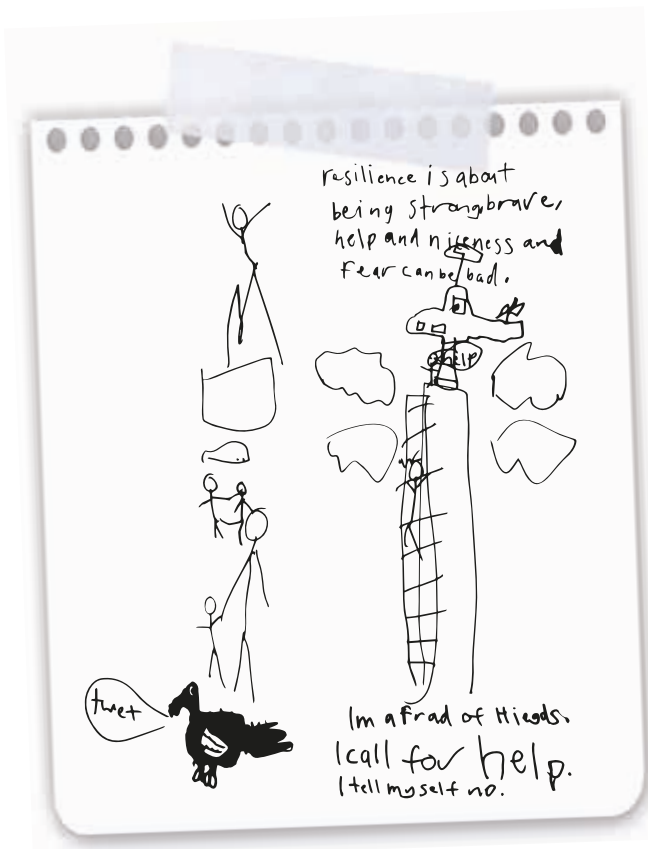 resilience is about
being strong, brave,
help and niceness and
fear can be bad.
help
twet
Im afrad of Hieghds.
I call for help.
I tell myself no.